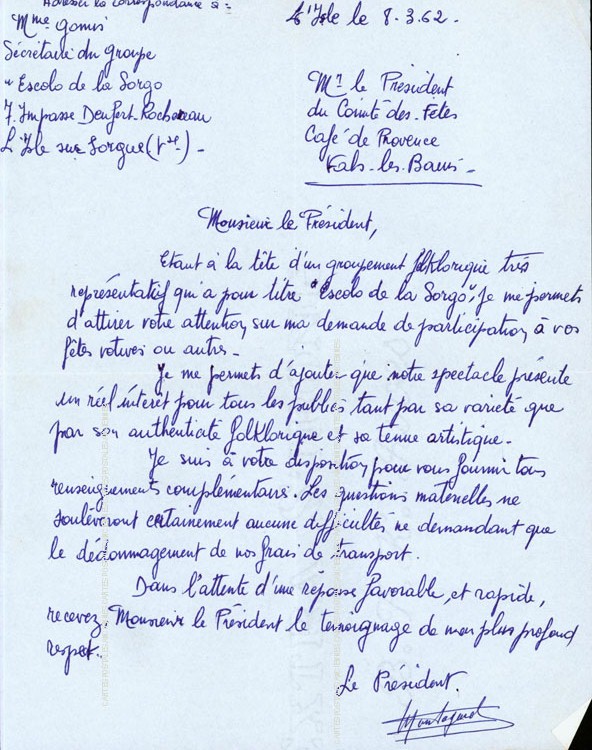 Adresser la correspondance à :
Mme Gomis
Secrétaire du groupe
" Escolo de la Sorgo
7. Impasse Denfert-Rochereau
L'Isle sur Sorgue (Vse) -
L'Isle le 8.3.62.
Mr le Président
du Comité des Fêtes
Café de Provence
Vals-les-Bains -
Monsieur le Président,
Etant à la tête d'un groupement folklorique très
représentatif qui a pour titre "Escolo de la Sorgo", je me permets
d'attirer votre attention, sur ma demande de participation, à vos
fêtes votives ou autres -
Je me permets d'ajouter que notre spectacle présente
un réel intérêt pour tous les publics tant par sa variété que
par son authenticité folklorique et sa tenue artistique -
Je suis à votre disposition, pour vous fournir tous
renseignements complémentaires. Les questions matérielles ne
soulèveront certainement aucune difficultés ne demandant que
le dédommagement de nos frais de transport.
Dans l'attente d'une réponse favorable, et rapide,
recevez Monsieur le Président le témoignage de mon plus profond
respect.
Le Président.